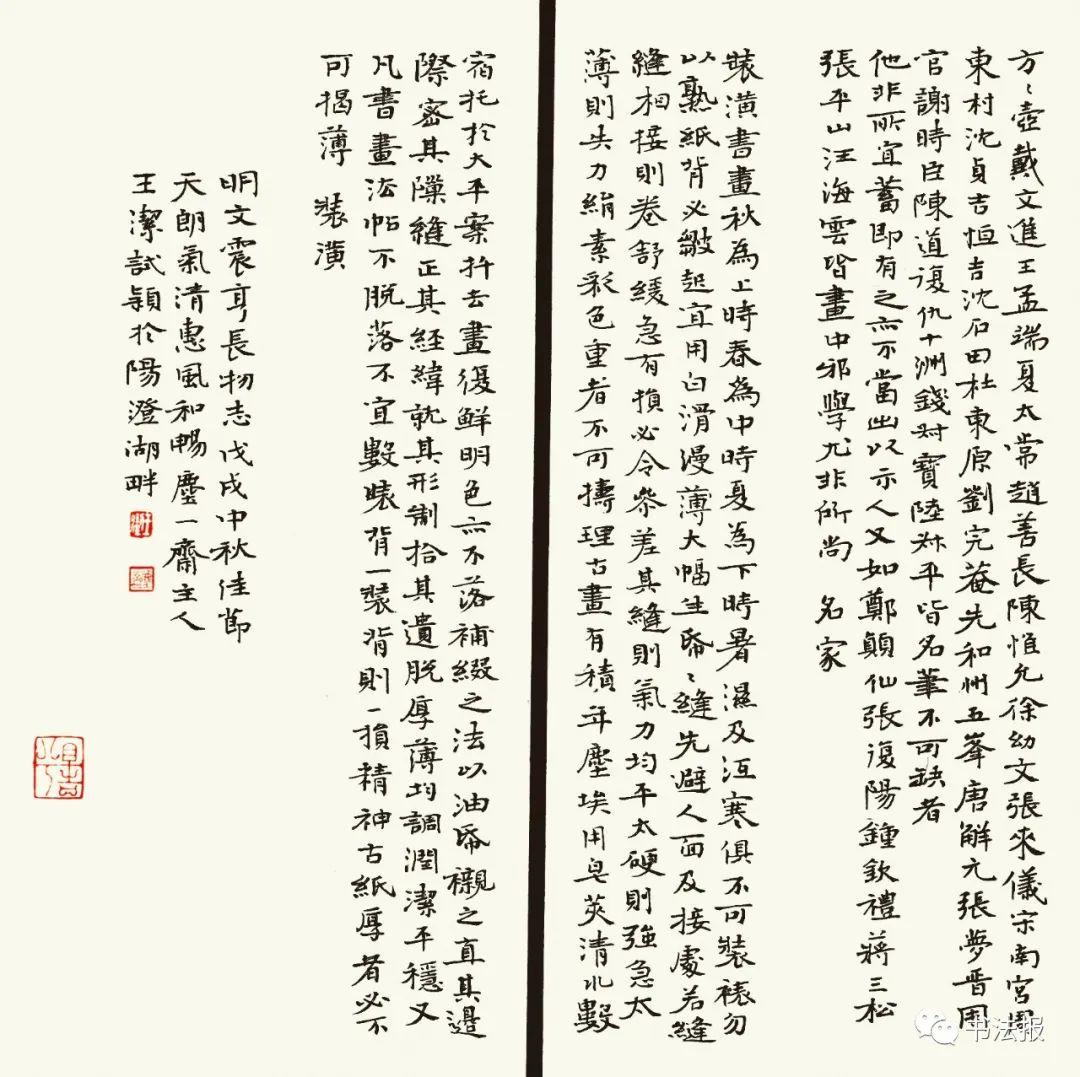 方〻壺戴文進王孟端夏太常趙善長陳惟允徐幼文張來儀宋南宮周
東村沈貞吉恒吉沈石田杜東原劉完菴先和州五峯唐解元張夢晋周
官謝時臣陳道復仇十洲錢叔寶陸叔平皆名筆不可缺者
他非所宜蓄即有之亦不當出以示人又如鄭顛仙張復陽鍾欽禮蔣三松
張平山汪海雲皆畫中邪學尤非所尚 名家
裝潢書畫秋為上時春為中時夏為下時暑濕及沍寒俱不可裝裱勿
以熟紙背必皺起宜用白滑漫薄大幅生帋〻縫先避人面及接處若縫
縫相接則卷舒緩急有損必令參差其縫則氣力均平太硬則強急太
薄則失力絹素彩色重者不可擣理古畫有積年塵埃用皂莢清水數
宿托於大平案扞去畫復鮮明色亦不落補綴之法以油帋襯之直其邊
際密其隟縫正其経緯就其形制拾其遺脱厚薄均調潤潔平穩又
凡書畫法帖不脱落不宜數裝背一裝背則一損精神古紙厚者必不
可揭薄 裝潢
明文震亨長物志戊戌中秋佳節
天朗氣清惠風和暢塵一齋主人
王潔試穎於陽澄湖畔
书法报